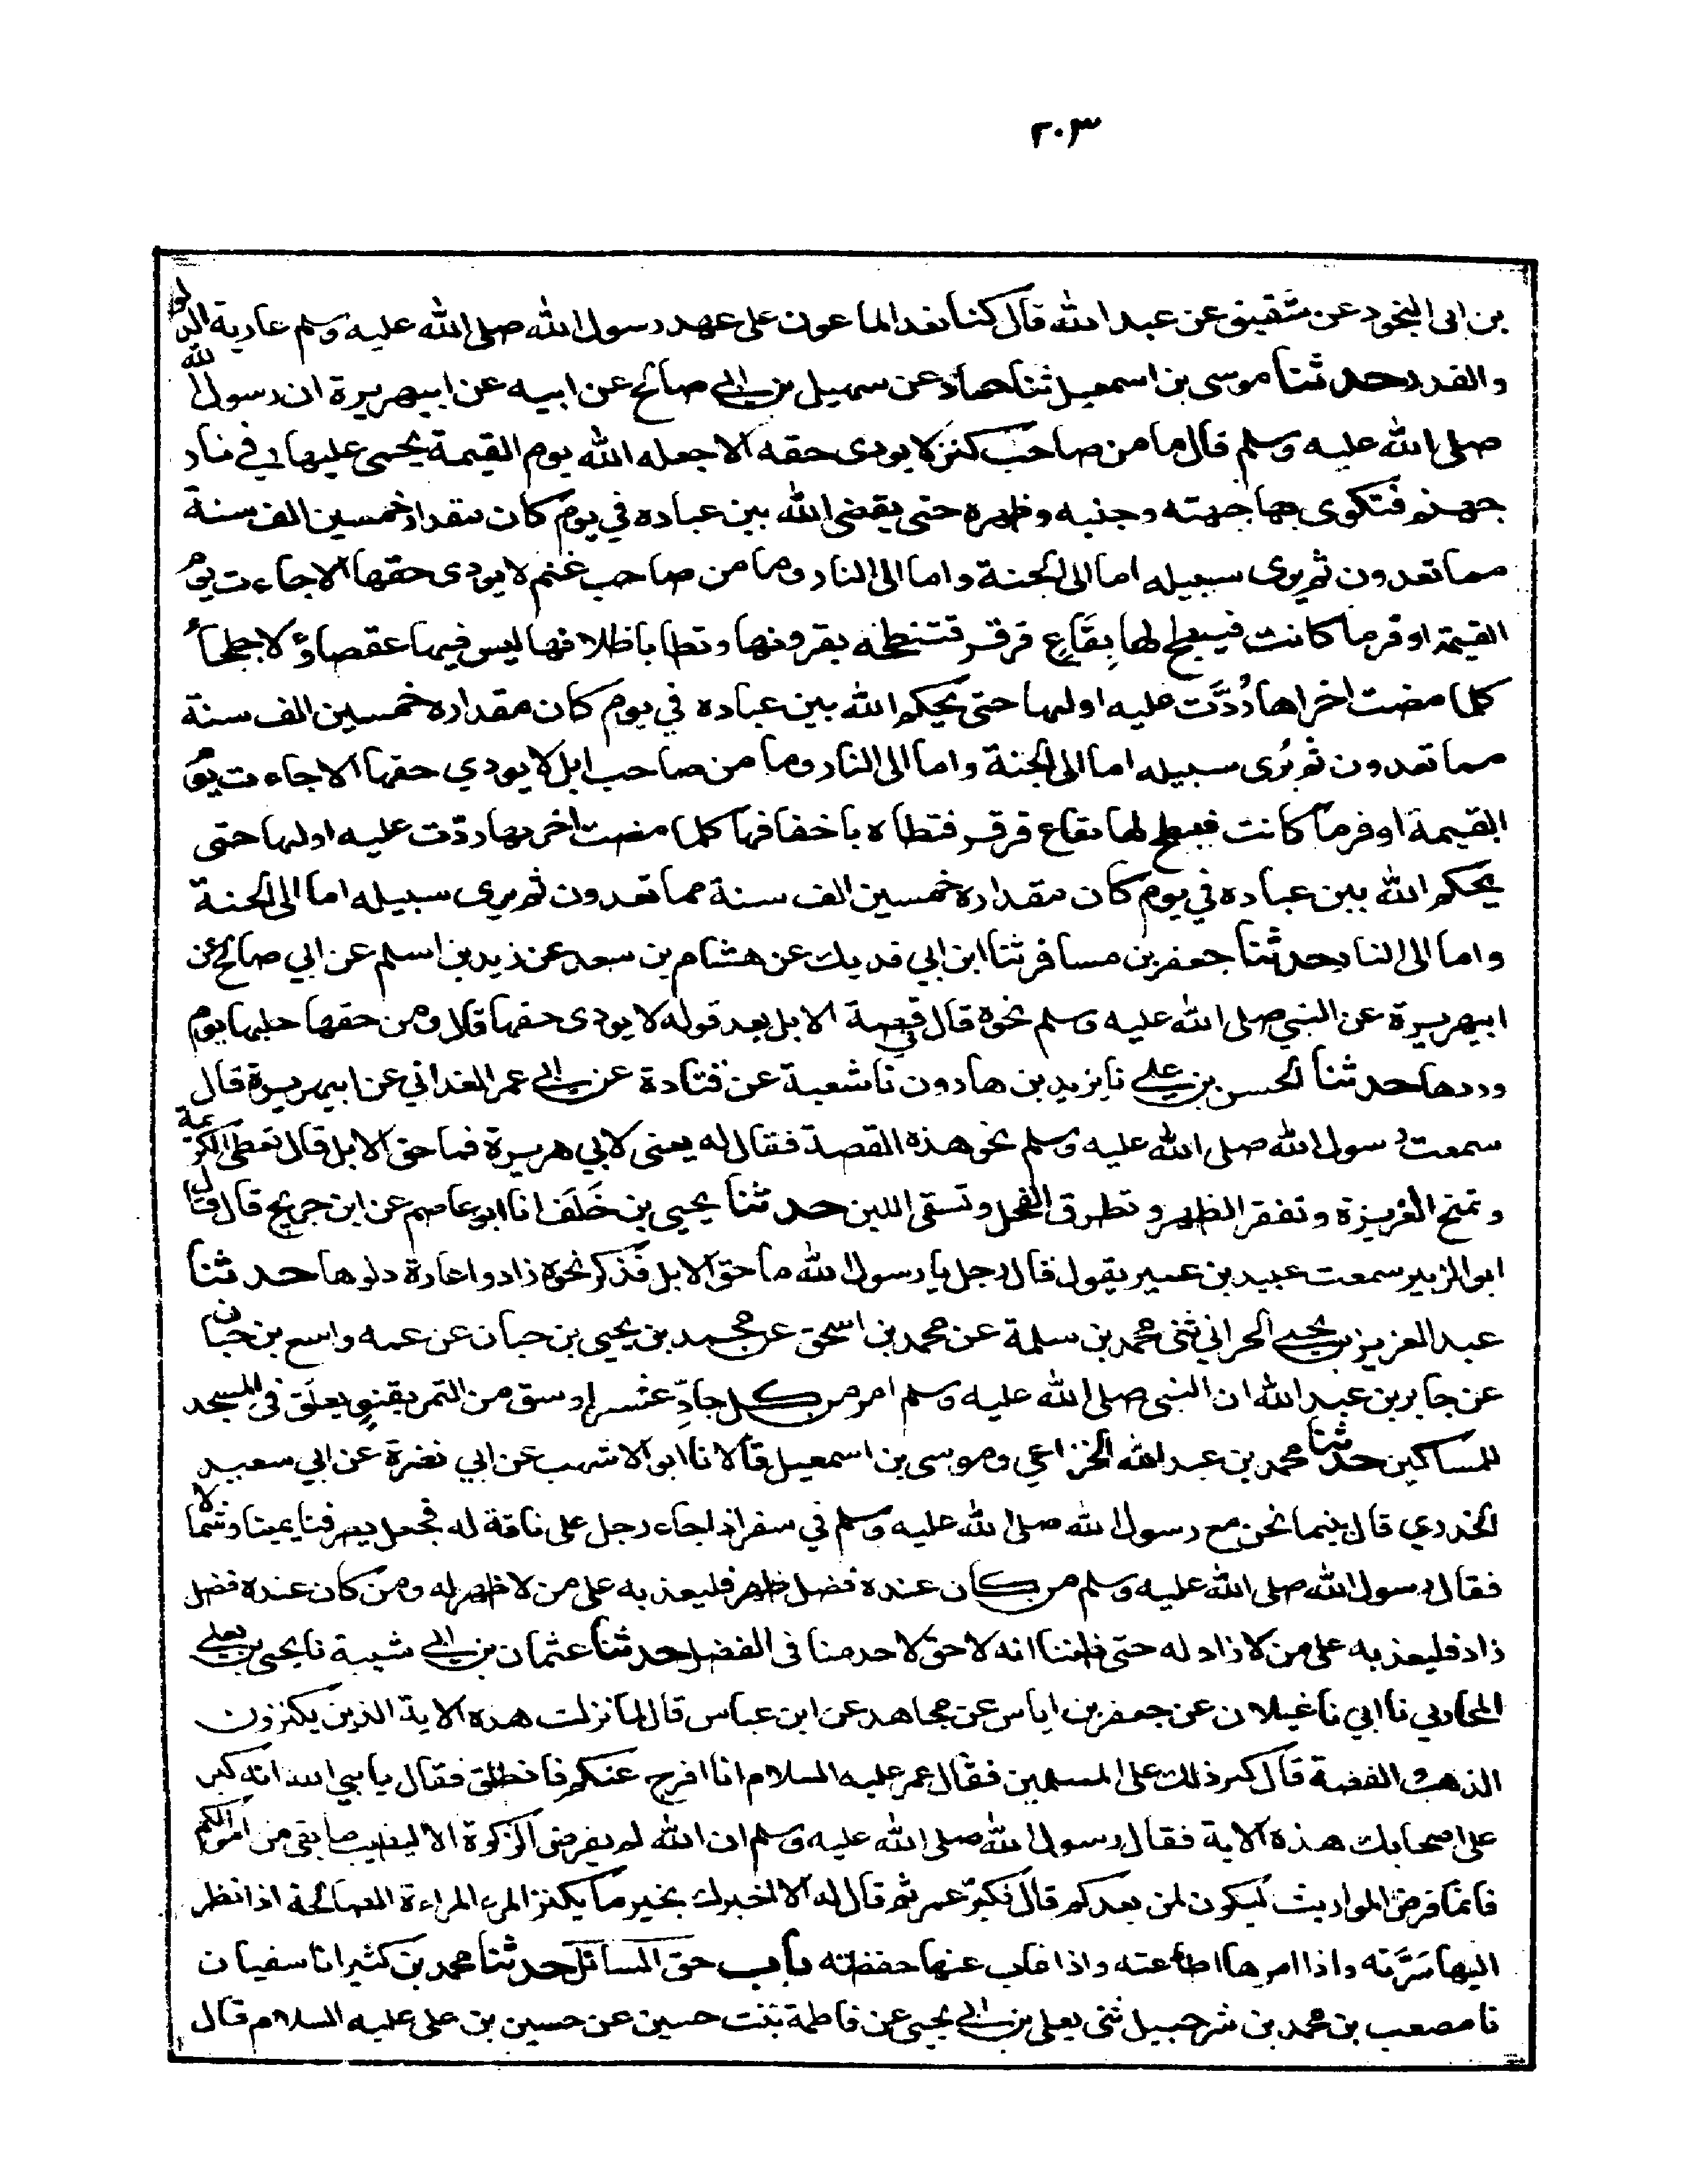 ٢٠٣
بن ابى النجود عن شقيق عن عبد الله قال كنا نعد الماعون على عهد رسول الله صلى الله عليه وسلم عارية الدلو
والقدر حدثنا موسى بن اسمعيل ثنا حماد عن سهيل بن ابي صالح عن ابيه عن ابيهريرة ان رسول الله
صلى الله عليه وسلم قال ما من صاحب كنز لا يودى حقه الا جعله الله يوم القيمة يحمى عليها في نار
جهنم فتكوى بها جبهته وجنبه وظهره حتى يقضى الله بين عباده في يوم كان مقداره خمسين الف سنة
مما تعدون ثم يرى سبيله اما الى الجنة واما الى النار وما من صاحب غنم لا يودى حقها الا جاءت يوم
القيمة اوفر ما كانت فيبطح لها بِقَاعٍ قرقر فتنطحه بقرونها وتطا باظلافها ليس فيها عقصاؤ لا جلحاء
كلما مضت اخراها رُدَّت عليه اولىها حتى يحكم الله بين عباده في يوم كان مقداره خمسين الف سنة
مما تعدون ثم يُرى سبيله اما الى الجنة واما الى النار وما من صاحب ابل لا يودي حقها الا جاءت يوم
القيمة اوفر ما كانت فيبطح لها بقاع قرقر فتطاه باخفافها كلما مضت اخريها ردّت عليه اولىها حتى
يحكم الله بين عباده في يوم كان مقداره خمسين الف سنة مما تعدون ثم يرى سبيله اما الى الجنة
واما الى النار حدثنا جعفر بن مسافر ثنا ابن ابي فديك عن هشام بن سعد عن زيد بن اسلم عن ابي صالح عن
ابيهريرة عن النبي صلى الله عليه وسلم نحوه قال في قصة الابل بعد قوله لا يودى حقها قال ومن حقها حلبها يوم
وردها حدثنا الحسن بن علي نا يزيد بن هارون نا شعبة عن قتادة عن ابي عمر الغداني عن ابيهريرة قال
سمعت رسول الله صلى الله عليه وسلم نحو هذه القصة فقال له يعنى لابي هريرة فما حق الابل قال تعطى الكريمة
وتمنح الغزيزة وتفقر الظهر وتطرق الفحل وتسقى اللبن حدثنا يحيى بن خَلَف انا ابو عاصم عن ابن جريج قال قال
ابو الزبير سمعت عبيد بن عمير يقول قال رجل يا رسول الله ما حق الابل فذكر نحوه زاد واعارة دلوها حدثنا
عبد العزيز بن يحيى الحراني ثنى محمد بن سلمة عن محمد بن اسحق عن محمد بن يحيى بن حبان عن عمه واسع بن حبان
عن جابر بن عبد الله ان النبي صلى الله عليه وسلم امر من كل جادِّ عشر اوسق من التمر بقنوٍ يعلق في المسجد
للمساكين حدثنا محمد بن عبد الله الخزاعي وموسى بن اسمعيل قالا نا ابو الاشهب عن ابي نضرة عن ابي سعيد
الخدري قال بينما نحن مع رسول الله صلى الله عليه وسلم في سفر اذ جاء رجل على ناقة له فجعل يصرفنا يمينا وشمالا
فقال رسول الله صلى الله عليه وسلم من كان عنده فضل ظهر فليعذ به على من لا ظهر له ومن كان عنده فضل
زاد فليعذ به على من لا زاد له حتى ظننا انه لا حق لاحد منا في الفضل حدثنا عثمان بن ابي شيبة نا يحيى بن يعلى
المحاربي نا ابي نا غيلان عن جعفر بن اياس عن مجاهد عن ابن عباس قال لما نزلت هذه الاية الذين يكنزون
الذهب والفضة قال كبر ذلك على المسلمين فقال عمر عليه السلام انا افرج عنكم فانطلق فقال يا نبي الله انه كبر
على اصحابك هذه الاية فقال رسول الله صلى الله عليه وسلم ان الله لم يفرض الزكوة الا ليطيب ما بقى من اموالكم
فانما فرض المواريث ليكون لمن بعدكم قال فكبّر عمر ثم قال له الا اخبرك بخير ما يكنز المرء المراءة الصالحة اذا نظر
اليها سَرَّته واذا امرها اطاعته واذا غاب عنها حفظته باب حق السائل حدثنا محمد بن كثير انا سفيان
نا مصعب بن محمد بن شرحبيل ثنى يعلى بن ابي يحيى عن فاطمة بنت حسين عن حسين بن على عليه السلام قال